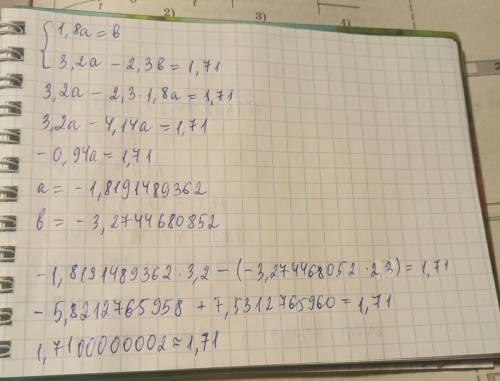 2) 3) 4)
{ 1,8a = в
3,2a - 2,3в = 1,71
3,2a - 2,3·1,8a = 1,71
3,2a - 4,14a = 1,71
- 0,94a = 1,71
a = - 1,8191489362
в = - 3,2744680852
-1,8191489362·3,2 - (-3,274468052·2,3) = 1,71
- 5,8212765958 + 7,5312765960 = 1,71
1,7100000002 ≈ 1,71